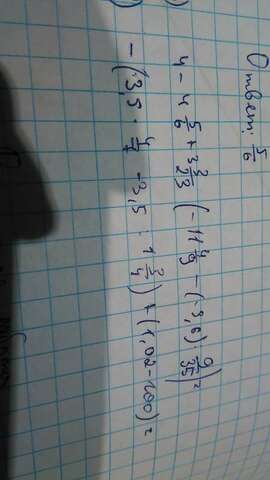 Ответ: 5/6
4 - 4 5/6 + 3 3/23 (-11 4/9 - (-3,6) · 9/35) =
- (3,5 · 4/7 - 3,5 : 1 3/4) + (1,02 - 100) =